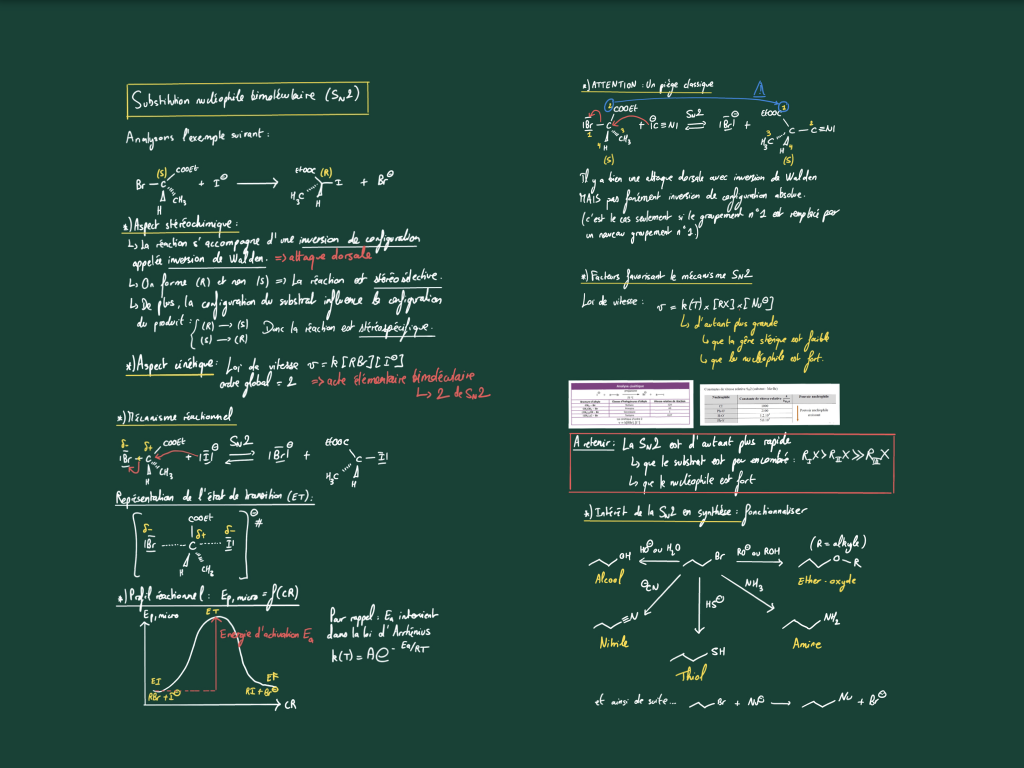 Substitution nucléophile bimoléculaire (SN2)
Analysons l'exemple suivant :
(S) COOEt
Br C + I⊖ → EtOOC (R) I + Br⊖
CH3 H H3C H
*) Aspect stéréochimique :
↳ La réaction s'accompagne d'une inversion de configuration
appelée inversion de Walden. => attaque dorsale
↳ On forme (R) et non (S) => La réaction est stéréosélective.
↳ De plus, la configuration du substrat influence la configuration
du produit : { (R) → (S)
(S) → (R) Donc la réaction est stéréospécifique.
*) Aspect cinétique : Loi de vitesse v = k [RBr][I⊖]
ordre global = 2 => acte élémentaire bimoléculaire
↳ 2 de SN2
*) Mécanisme réactionnel
δ- δ+ COOEt SN2 EtOOC
|Br C + |I|⊖ ⇌ |Br|⊖ + C I|
H CH3 H3C H
Représentation de l'état de transition (ET) :
COOEt ⊖ #
δ- δ+ δ-
|Br ...... C ...... I|
H CH3
*) Profil réactionnel : Ep,micro = f(CR)
Ep,micro ET
Energie d'activation Ea
EI EF
RBr + I⊖ RI + Br⊖
CR
Par rappel : Ea intervient
dans la loi d'Arrhénius
k(T) = A e - Ea/RT
*) ATTENTION : Un piège classique
⚠
1 COOEt EtOOC 1
|Br C + |C≡N| SN2 ⇌ |Br|⊖ + C C≡N|
1 4 H 3 CH3 3 H3C 4 H 2
(S) (S)
Il y a bien une attaque dorsale avec inversion de Walden
MAIS pas forcément inversion de configuration absolue.
(c'est le cas seulement si le groupement n°1 est remplacé par
un nouveau groupement n°1.)
*) Facteurs favorisant le mécanisme SN2
Loi de vitesse : v = k(T) x [RX] x [Nu⊖]
↳ d'autant plus grande
↳ que la gêne stérique est faible
↳ que le nucléophile est fort.
A retenir : La SN2 est d'autant plus rapide
↳ que le substrat est peu encombré : RIX > RIIX >> RIIIX
↳ que le nucléophile est fort
*) Intérêt de la SN2 en synthèse : fonctionnaliser
(R = alkyle)
OH HO⊖ ou H2O Br RO⊖ ou ROH O R
Alcool Ether-oxyde
⊖CN HS⊖ NH3
≡N NH2
Nitrile Amine
SH
Thiol
et ainsi de suite... Br + Nu⊖ → Nu + Br⊖